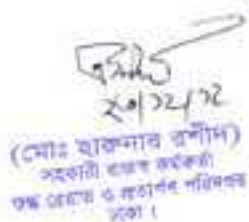 ২০/১২/১২
(মোঃ হারুনার রশীদ)
সহকারী রাজস্ব কর্মকর্তা
শুল্ক রেয়াত ও প্রত্যর্পণ পরিদপ্তর
ঢাকা।